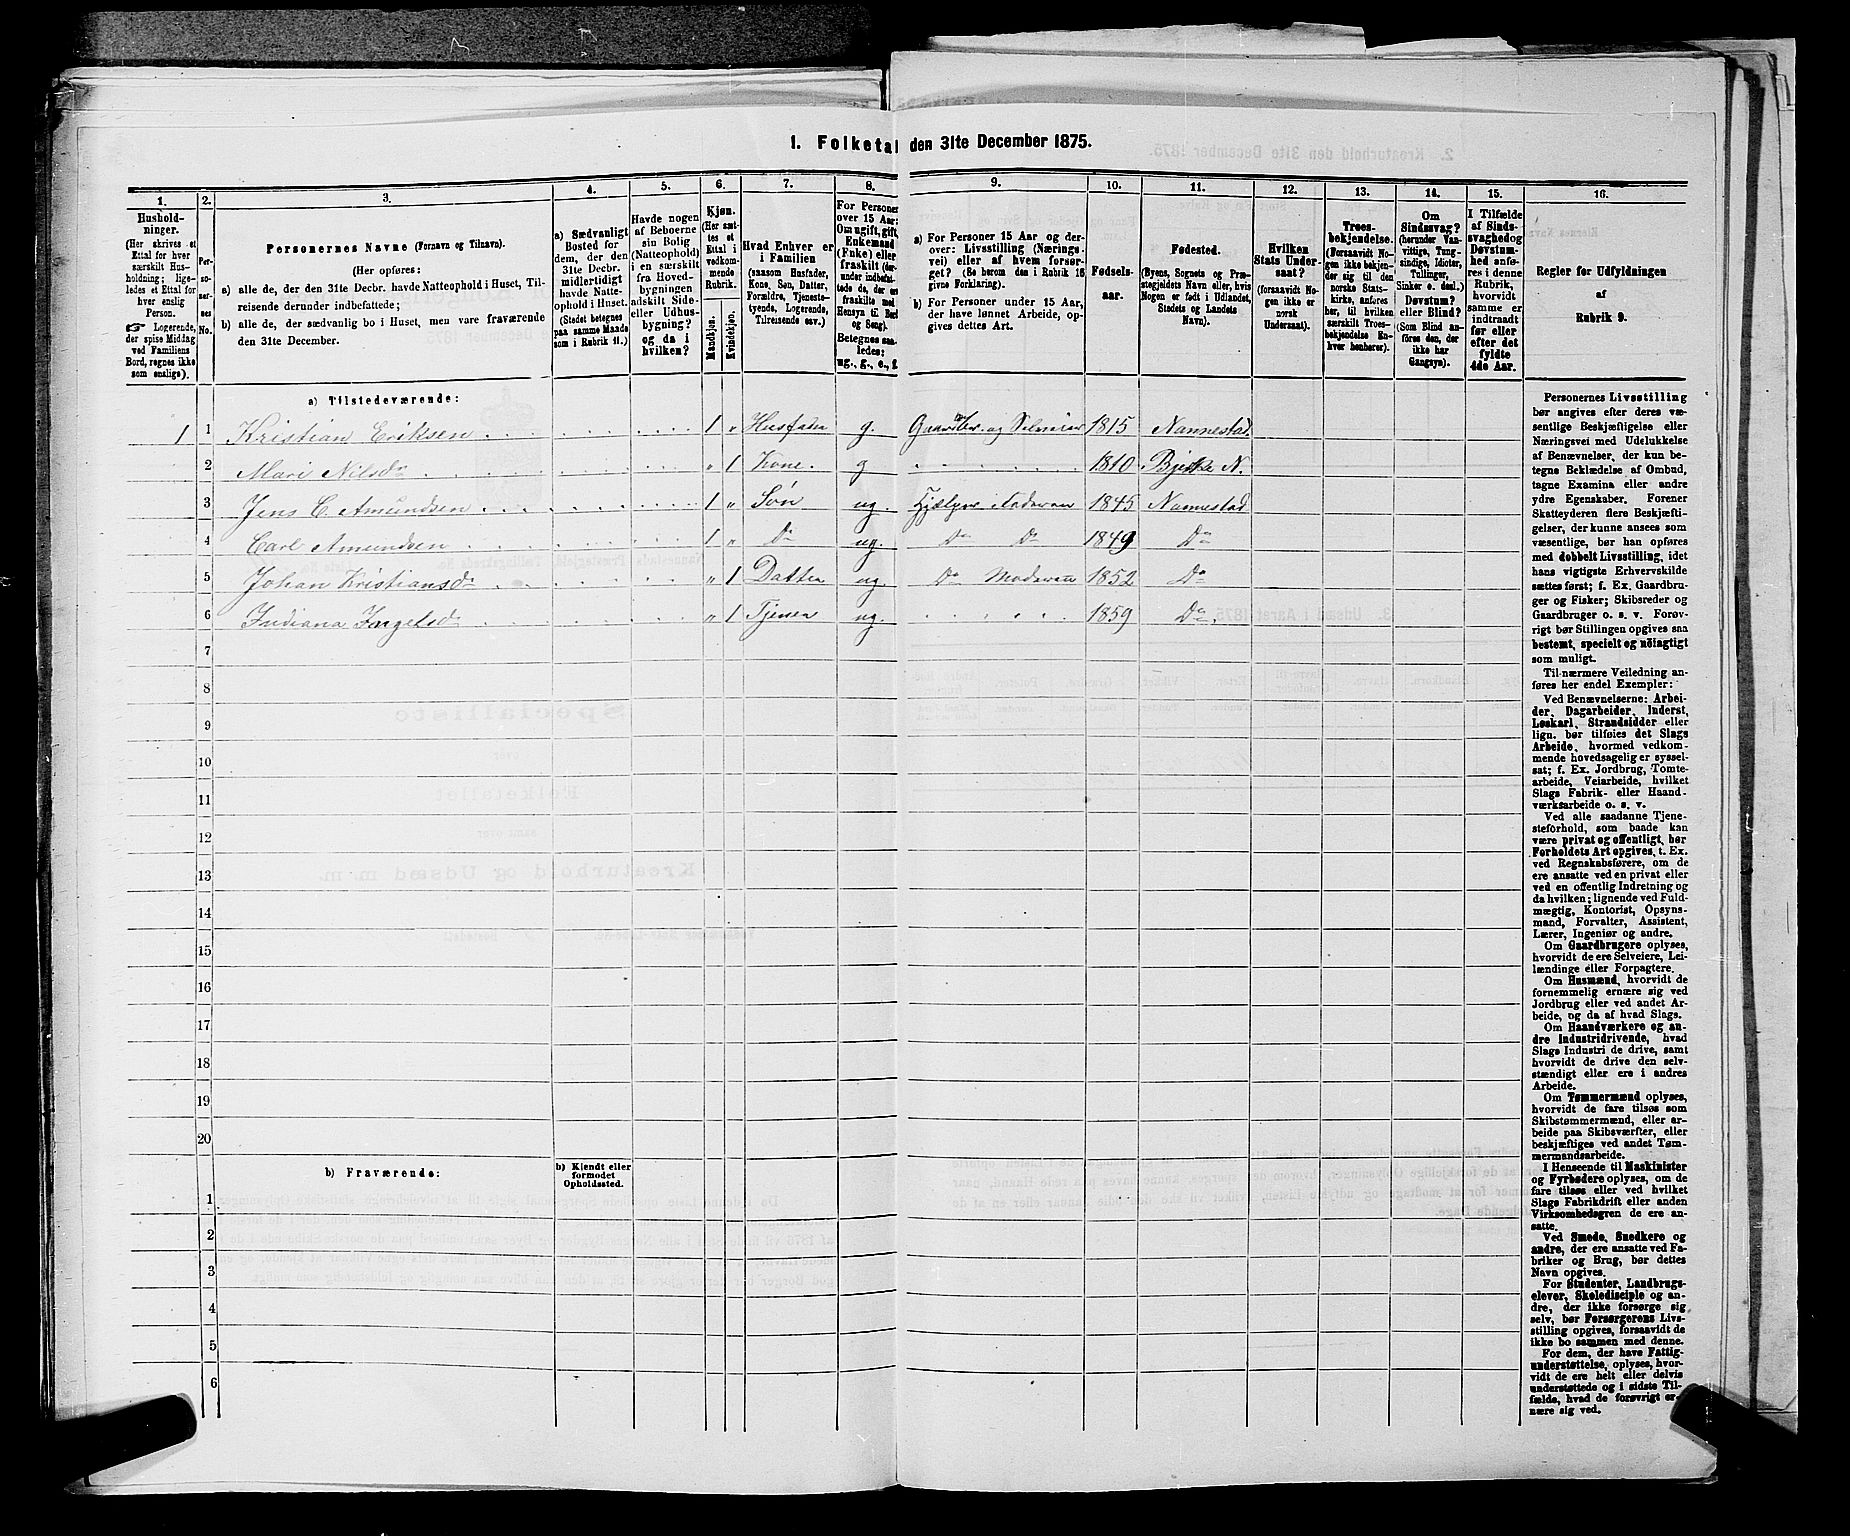 1. Folketal den 31te December 1875.
1.
Hushold-
ninger.
(Her skrives et
Ettal for hver
særskilt Hus-
holdning; lige-
ledes et Ettal for
hver enslig
Person.
☞ Logerende,
der spise Middag
ved Familiens
Bord, regnes ikke
som enslige).
2.
Per-
so-
ner-
nes
No.
3.
Personernes Navne (Fornavn og Tilnavn).
(Her opføres:
a) alle de, der den 31te Decbr. havde Natteophold i Huset, Til-
reisende derunder indbefattede;
b) alle de, der sædvanlig bo i Huset, men vare fraværende
den 31te December.
4.
a) Sædvanligt
Bosted for
dem, der den
31te Decbr.
midlertidigt
havde Natte-
ophold i Huset.
(Stedet betegnes
paa samme Maade
som i Rubrik 11.)
5.
Havde nogen
af Beboerne
sin Bolig
(Natteophold)
i en særskilt
fra Hoved-
bygningen
adskilt Side-
eller Udhus-
bygning?
og da i
hvilken?
6.
Kjøn.
(Her sæt-
tes et
Ettal i
vedkom-
mende
Rubrik.
Mandkjøn.
Kvindekjøn.
7.
Hvad Enhver er
i Familien
(saasom Husfader,
Kone, Søn, Datter,
Forældre, Tjeneste-
tyende, Logerende,
Tilreisende osv.)
8.
For Personer
over 15 Aar:
Om ugift, gift,
Enkemand
(Enke) eller
fraskilt
Betegnes saa-
ledes:
ug., g., e., f.
9.
a) For Personer 15 Aar og der-
over: Livsstilling (Nærings-
vei) eller af hvem forsør-
get? (Se herom den i Rubrik 16
givne Forklaring).
b) For Personer under 15 Aar,
der have lønnet Arbeide, op-
gives dettes Art.
10.
Fødsels-
aar.
11.
Fødested.
(Byens, Sognets og Præ-
stegjeldets Navn eller, hvis
Nogen er født i Udlandet,
Stedets og Landets
Navn).
12.
Hvilken
Stats Under-
saat?
(forsaavidt No-
gen ikke er
norsk
Undersaat).
13.
Troes-
bekjendelse.
(Forsaavidt No-
gen ikke bekjen-
der sig til den
norske Stats-
kirke, anføres
her, til hvilken
særskilt Troes-
bekjendelse En-
hver henhører).
14.
Om
Sindssvag?
(herunder Van-
vittige, Tung-
sindige, Idioter,
Tullinger,
Sinker o. desl.)
Døvstum?
eller Blind?
(Som Blind an-
føres den, der
ikke har
Gangsyn).
15.
I Tilfælde
af Sinds-
svaghed og
Døvstum-
hed anfø-
res i denne
Rubrik,
hvorvidt
samme er
indtraadt
før eller
efter det
fyldte
4de Aar.
16.
Regler for Udfyldningen
af
Rubrik 9.
a) Tilstedeværende:
1 1 Kristian Eriksen 1 „ Husfader g. Gaardbr. og Selveier 1815 Nannestad
2 Mari Nilsd. „ 1 Kone. g 1810 Bjerke N.
3 Jens C. Amundsen 1 „ Søn ug. Hjælper Faderen 1845 Nannestad
4 Carl Amundsen 1 „ Do ug. Do Do 1849 Do
5 Johan Kristiansd. „ 1 Datter ug. Do Moderen 1852 Do
6 Indiana Ingelsd. „ 1 Tjener ug. 1859 Do.
7
8
9
10
11
12
13
14
15
16
17
18
19
20
b) Fraværende:
b) Kjendt eller
formodet
Opholdssted.
1
2
3
4
5
6
Personernes Livsstilling
bør angives efter deres væ-
sentlige Beskjæftigelse eller
Næringsvei med Udelukkelse
af Benævnelser, der kun be-
tegne Beklædelse af Ombud,
tagne Examina eller andre
ydre Egenskaber. Forener
Skatteyderen flere Beskjæfti-
gelser, der kunne ansees som
væsentlige, bør han opføres
med dobbelt Livsstilling, idet
hans vigtigste Erhvervskilde
sættes først; f. Ex. Gaardbru-
ger og Fisker; Skibsreder og
Gaardbruger o. s. v. Forøv-
rigt bør Stillingen opgives saa
bestemt, specielt og nöiagtigt
som muligt.
Til nærmere Veiledning an-
føres her endel Exempler:
Ved Benævnelserne: Arbei-
der, Dagarbeider, Inderst,
Løskarl, Strandsidder eller
lign. bør tilføies det Slags
Arbeide, hvormed vedkom-
mende hovedsagelig er syssel-
sat; f. Ex. Jordbrug, Tomte-
arbeide, Veiarbeide, hvilket
Slags Fabrik- eller Haand-
værksarbeide o. s. v.
Ved alle saadanne Tjene-
steforhold, som baade kan
være privat og offentligt, bør
Forholdets Art opgives, t. Ex.
ved Regnskabsførere, om de
ere ansatte ved en privat eller
ved en offentlig Indretning og
da hvilken; lignende ved Fuld-
mægtig, Kontorist, Opsyns-
mand, Forvalter, Assistent,
Lærer, Ingeniør og andre.
Om Gaardbrugere oplyses,
hvorvidt de ere Selveiere, Lei-
lændinge eller Forpagtere.
Om Husmænd, hvorvidt de
fornemmelig ernære sig ved
Jordbrug eller ved andet Ar-
beide, og da af hvad Slags.
Om Haandværkere og an-
dre Industridrivende, hvad
Slags Industri de drive, samt
hvorvidt de drive den selv-
stændigt eller ere i andres
Arbeide.
Om Tømmermænd oplyses,
hvorvidt de fare tilsøs som
Skibstømmermænd, eller ar-
beide paa Skibsværfter, eller
beskjæftiges ved andet Tøm-
mermandsarbeide.
I Henseende til Maskinister
og Fyrbødere oplyses, om de
fare tilsøs eller ved hvilket
Slags Fabrikdrift eller anden
Virksomhedsgren de ere an-
satte.
Ved Smede, Snedkere og
andre, der ere ansatte ved Fa-
briker og Brug, bør dettes
Navn opgives.
For Studenter, Landbrugs-
elever, Skoledisciple og an-
dre, der ikke forsørge sig
selv, bør Forsørgerens Livs-
stilling opgives, forsaavidt de
ikke bo sammen med denne.
For dem, der have Fattig-
understøttelse, oplyses, hvor-
vidt de ere helt eller delvis
understøttede og i sidste Til-
fælde, hvad de forøvrigt er-
nære sig ved.